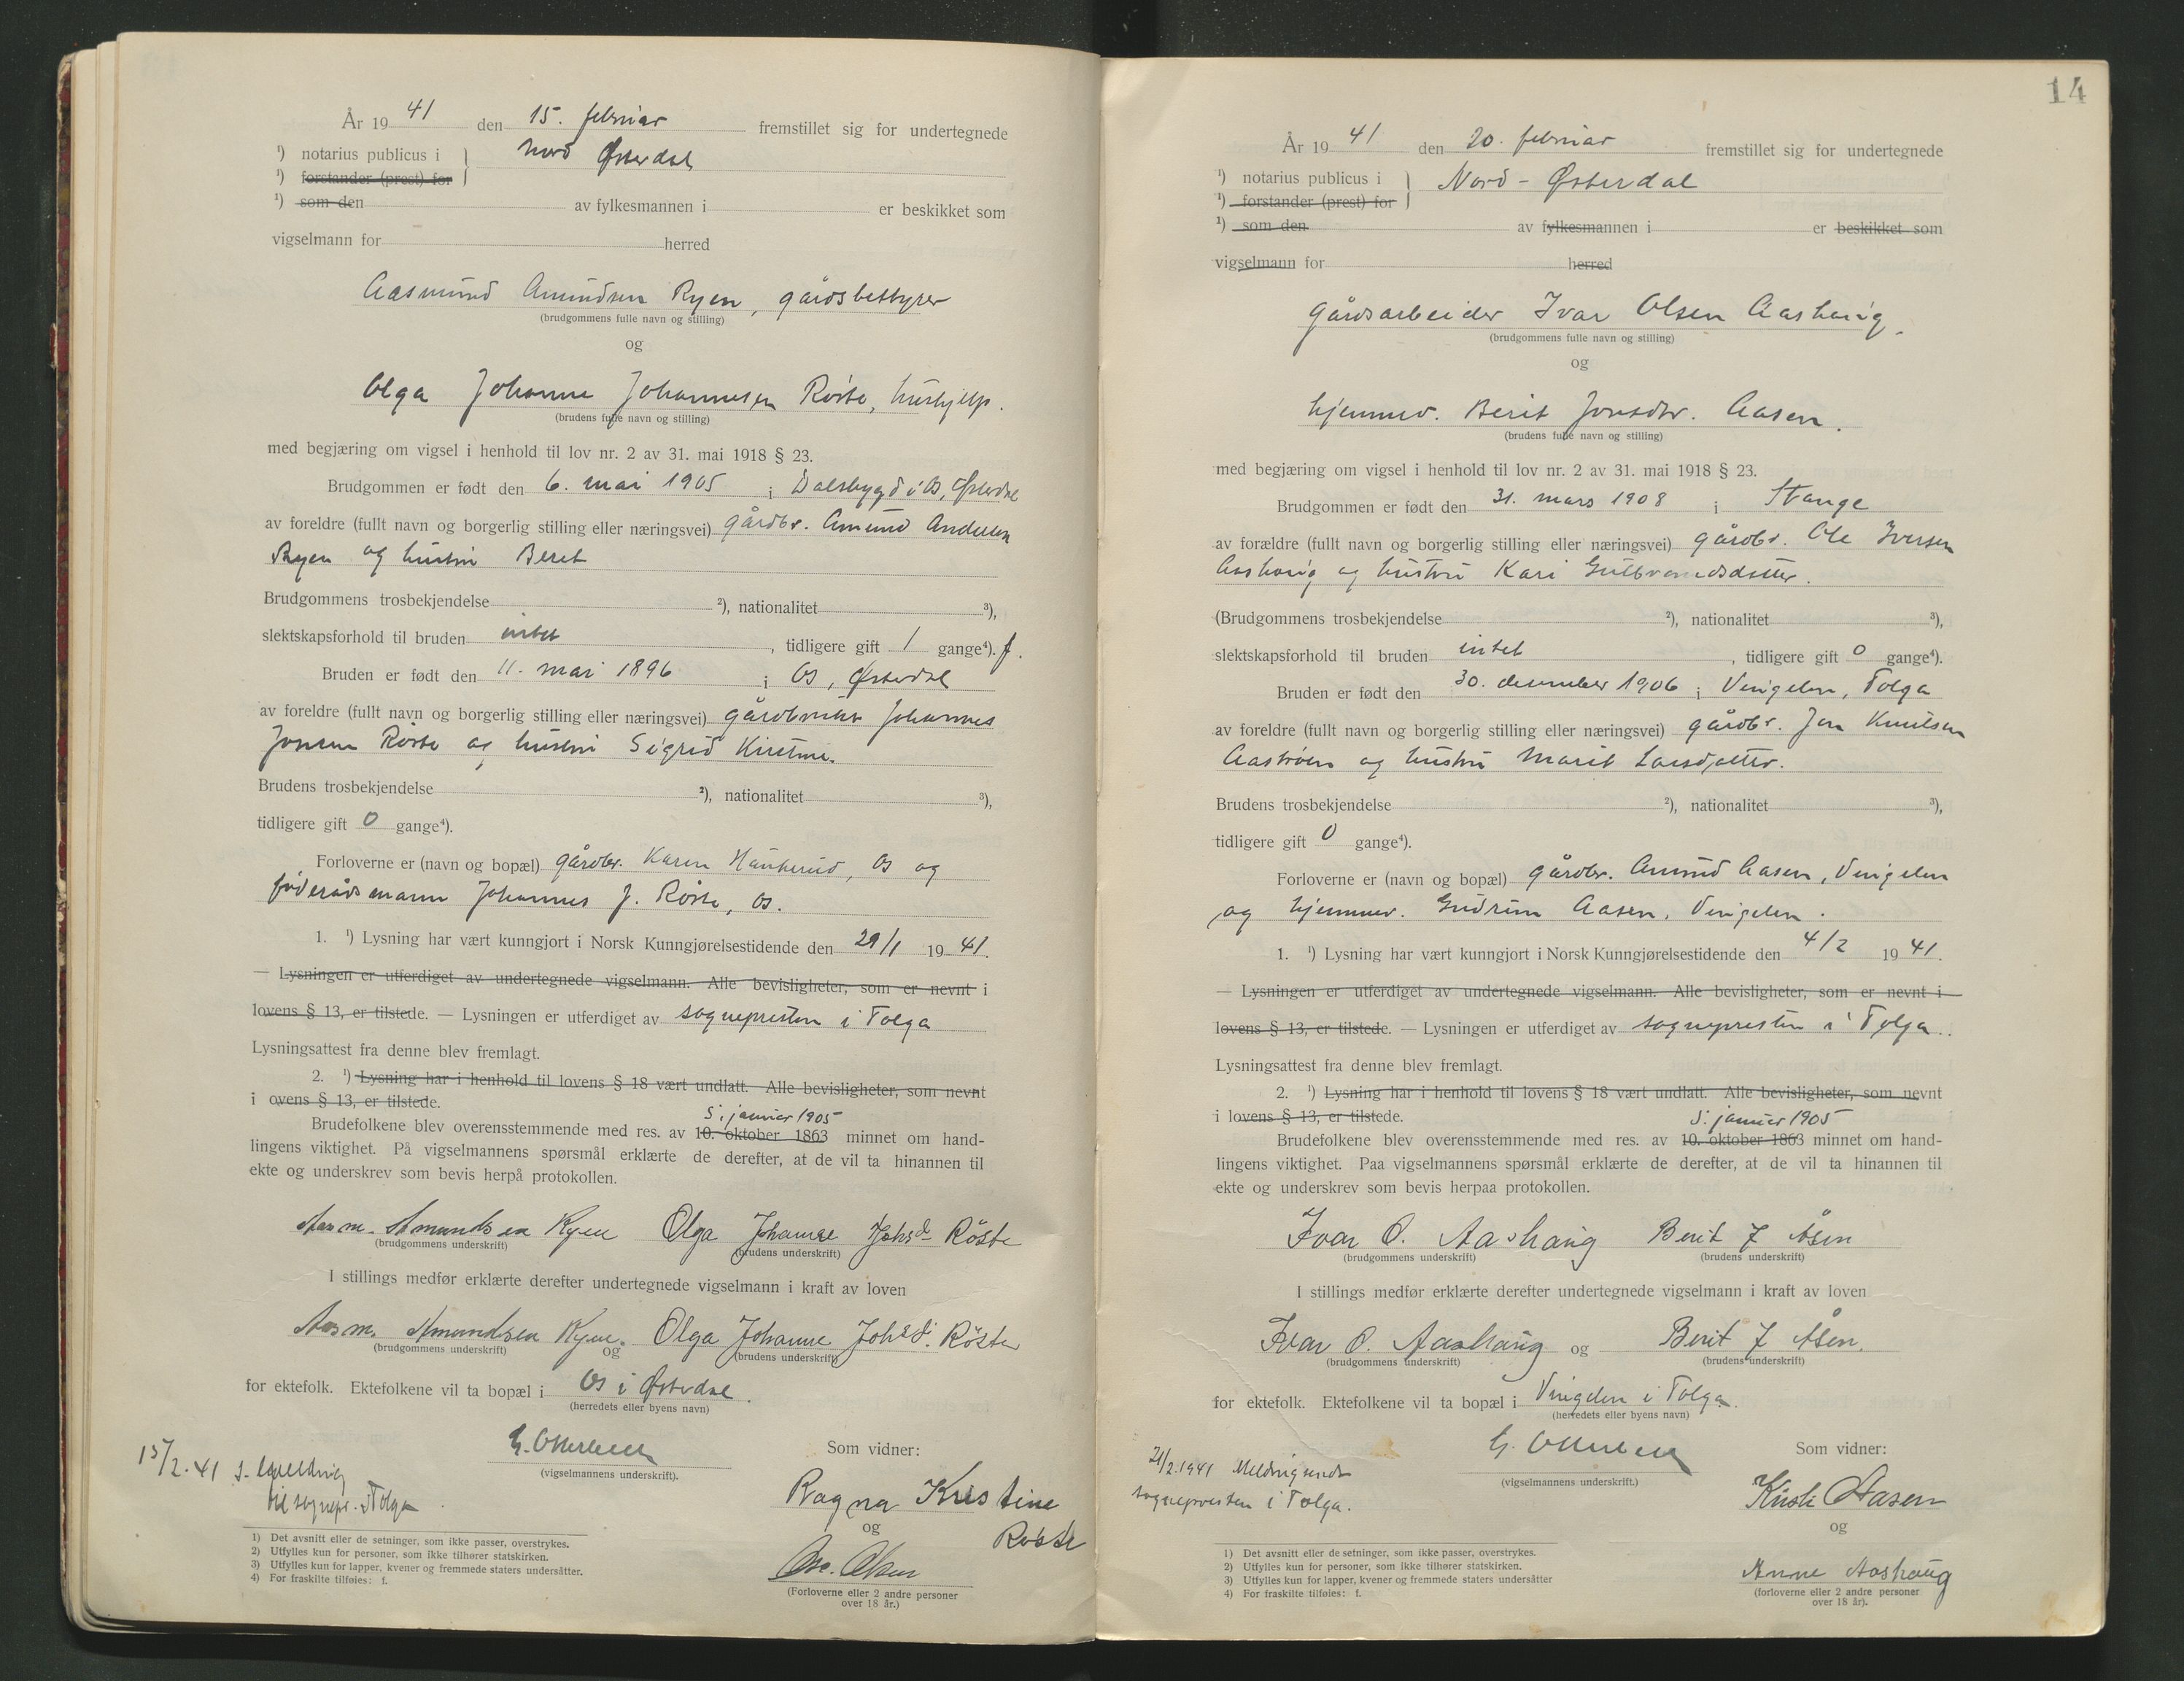 År 19 41 den 15. februar fremstillet sig for undertegnede
¹) notarius publicus i Nord Østerdal
¹) forstander (prest) for
¹) som den av fylkesmannen i er beskikket som
vigselmann for herred
Aasmund Amundsen Ryen, gårdsbestyrer
(brudgommens fulle navn og stilling)
og
Olga Johanne Johannesen Røste, hushjelp.
(brudens fulle navn og stilling)
med begjæring om vigsel i henhold til lov nr. 2 av 31. mai 1918 § 23.
Brudgommen er født den 6. mai 1905 i Dalsbygd i Os, Østerdal
av foreldre (fullt navn og borgerlig stilling eller næringsvei) gårdbr. Amund Andersen
Ryen og hustru Beret
Brudgommens trosbekjendelse ²), nationalitet ³),
slektskapsforhold til bruden intet, tidligere gift 1 gange⁴). f.
Bruden er født den 11. mai 1896 i Os, Østerdal
av foreldre (fullt navn og borgerlig stilling eller næringsvei) gårdbruker Johannes
Jonsen Røste og hustru Sigrid Kirstine.
Brudens trosbekjendelse ²), nationalitet ³),
tidligere gift 0 gange⁴).
Forloverne er (navn og bopæl) gårdbr. Karen Haukerud, Os og
føderådsmann Johannes J. Røste, Os.
1. ¹) Lysning har vært kunngjort i Norsk Kunngjørelsestidende den 29/1 19 41.
— Lysningen er utferdiget av undertegnede vigselmann. Alle bevisligheter, som er nevnt i
lovens § 13, er tilstede. — Lysningen er utferdiget av sognepresten i Tolga
Lysningsattest fra denne blev fremlagt.
2. ¹) Lysning har i henhold til lovens § 18 vært undlatt. Alle bevisligheter, som nevnt
i ovens § 13, er tilstede.
5. januar 1905
Brudefolkene blev overensstemmende med res. av 10. oktober 1863 minnet om hand-
lingens viktighet. På vigselmannens spørsmål erklærte de derefter, at de vil ta hinannen til
ekte og underskrev som bevis herpå protokollen.
Aasm. Amundsen Ryen Olga Johanne Johsd. Röste
(brudgommens underskrift) (brudens underskrift)
I stillings medfør erklærte derefter undertegnede vigselmann i kraft av loven
Aasm. Amundsen Ryen. og Olga Johanne Johsd. Röste
(brudgommens underskrift) (brudens underskrift)
for ektefolk. Ektefolkene vil ta bopæl i Os i Østerdal.
(herredets eller byens navn)
(vigselmannens underskrift).
15/2.41
til sognepr. i Tolga
Som vidner:
Ragna Kristine
Røste
og
Olsen
(Forloverne eller 2 andre personer
over 18 år.)
1) Det avsnitt eller de setninger, som ikke passer, overstrykes.
2) Utfylles kun for personer, som ikke tilhører statskirken.
3) Utfylles kun for lapper, kvener og fremmede staters undersåtter.
4) For fraskilte tilføies: f.
14
År 19 41 den 20. februar fremstillet sig for undertegnede
¹) notarius publicus i Nord-Østerdal
¹) forstander (prest) for
¹) som den av fylkesmannen i er beskikket som
vigselmann for herred
gårdsarbeider Ivar Olsen Aashaug.
(brudgommens fulle navn og stilling)
og
hjemmev. Berit Jonsdtr. Aasen.
(brudens fulle navn og stilling)
med begjæring om vigsel i henhold til lov nr. 2 av 31. mai 1918 § 23.
Brudgommen er født den 31. mars 1908 i Stange
av forældre (fullt navn og borgerlig stilling eller næringsvei) gårdbr. Ole Iversen
Aashaug og hustru Kari Gulbrandsdatter.
(Brudgommens trosbekjendelse ²), nationalitet ³),
slektskapsforhold til bruden intet, tidligere gift 0 gange⁴).
Bruden er født den 30. desember 1906 i Vingelen, Tolga
av foreldre (fullt navn og borgerlig stilling eller næringsvei) gårdbr. Jon Knutsen
Aastrøen og hustru Marit Larsdatter.
Brudens trosbekjendelse ²), nationalitet ³),
tidligere gift 0 gange⁴).
Forloverne er (navn og bopæl) gårdbr. Amund Aasen, Vingelen
og hjemmev. Gudrun Aasen, Vingelen.
1. ¹) Lysning har vært kunngjort i Norsk Kunngjørelsestidende den 4/2 19 41.
— Lysningen er utferdiget av undertegnede vigselmann. Alle bevisligheter, som er nevnt i
lovens § 13, er tilstede. — Lysningen er utferdiget av sognepresten i Tolga.
Lysningsattest fra denne blev fremlagt.
2. ¹) Lysning har i henhold til lovens § 18 vært undlatt. Alle bevisligheter, som nevnt
i lovens § 13, er tilstede.
5. januar 1905
Brudefolkene blev overensstemmende med res. av 10. oktober 1863 minnet om hand-
lingens viktighet. Paa vigselmannens spørsmål erklærte de derefter, at de vil ta hinannen til
ekte og underskrev som bevis herpaa protokollen.
Ivar O. Aashaug Berit J Åsen
(brudgommens underskrift) (brudens underskrift)
I stillings medfør erklærte derefter undertegnede vigselmann i kraft av loven
Ivar O. Aashaug og Berit J Åsen.
(brudgommens underskrift) (brudens underskrift)
for ektefolk. Ektefolkene vil ta bopæl i Vingelen i Tolga.
(herredets eller byens navn)
(vigselmannens underskrift.)
21/2.1941 Melding sendt
sognepresten i Tolga.
Som vidner:
Kirsti Aasen
og
Anne Aashaug
(forloverne eller 2 andre personer
over 18 år).
1) Det avsnitt eller de setninger, som ikke passer, overstrykes.
2) Utfylles kun for personer, som ikke tilhører statskirken.
3) Utfylles kun for lapper, kvener og fremmede staters undersåtter
4) For fraskilte tilføies: f.